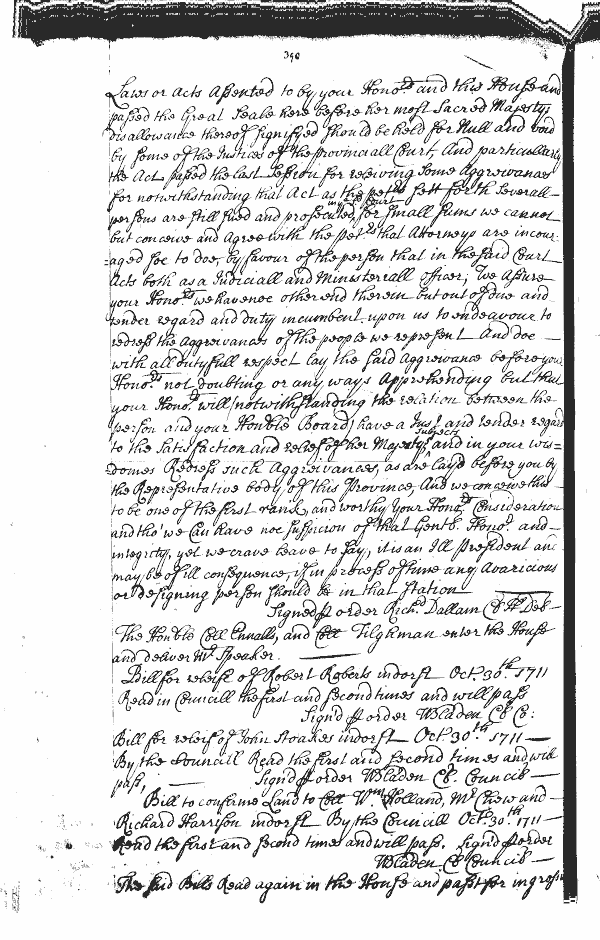 390
Laws or Acts Assented to by your Hono.rs and this House and
passed the Great Seale here before her most Sacred Majesty
disallowance thereof signifyed should be held for Null and void
by some of the Justices of the Provinciall Court, And particularly
the Act passed the last Session for receiving some Aggreivances
for notwithstanding that Act as the petrs sett forth severall
persons are still sued and prosecuted in sd Court for small sums we cannot
but conceive and Agree with the petrs that Attorneys are incour
=aged soe to doe, by favour of the person that in the said Court
Acts both as a Judiciall and Ministeriall officer, We Assure
your Hono.rs we have noe other end therein but out of due and
tender regard and duty incumbent upon us to endeavour to
redress the Aggrevances of the people we represent And doe
with all dutyfull respect lay the said Aggrevance before your
Hono.rs not doubting or any ways Apprehending but that
your Hono.rs will (notwithstanding the relation between the
person and your Honble Board) have a Just and tender regard
to the Satisfaction and releif of her Majestys Subjects and in your wis=
=domes Redress such Aggreivances, as are lay'd before you by
the Representative body of this Province, And we conceive this
to be one of the first rank, and worthy your Hono.rs Consideration
and tho' we can have noe suspicion of that Gentls. Hono.r and
integrity, yet we crave leave to say, it is an Ill President and
may be of ill consequence, if in process of time any Avaricious
or designing person should be in that Station
Signed p order Rich. Dallam Cl H. Del
The Honble Coll Ennalls, and Coll Tilghman enter the House
and deliver Mr Speaker.
Bill for releife of Robert Roberts indorst Oct. 30.th 1711
Read in Councill the first and second times and will pass
Sign'd p order WBladen Cl Co:
Bill for releif of John Stoakes indorst Oct. 30.th 1711
By the Councill Read the first and second times and will
pass, Signd p order WBladen Cl. Councill
Bill to confirme Land to Coll Wm. Holland, Mr Chew and
Richard Harrison indorst By the Councill Oct. 30.th 1711
Read the first and second times and will pass. Signd p order
WBladen Cl Councill
The said Bills Read again in the House and past for ingross